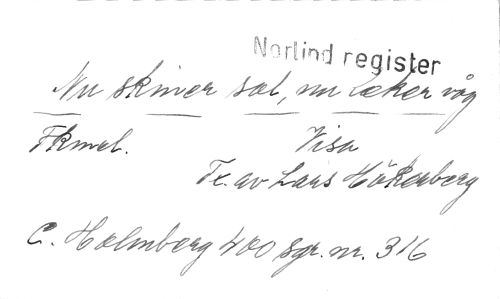 Norlind register
Nu skiner sol, nu leker våg
Fkmel. Visa
Tx. av Lars Hökerberg
C. Holmberg 400 sgr. nr. 316